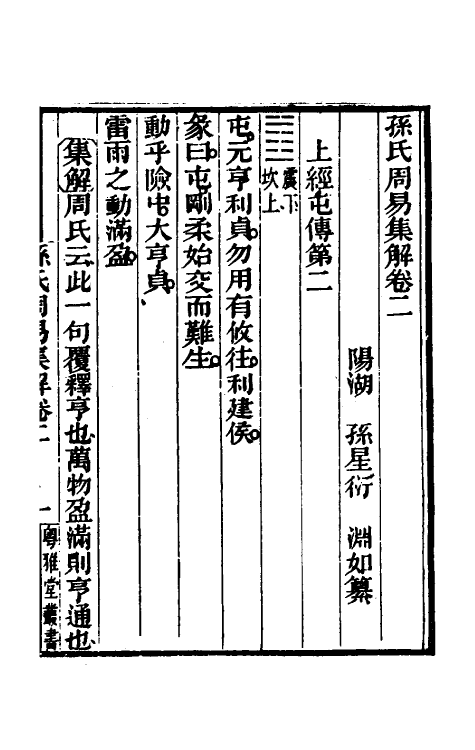 孫氏周易集解卷二
陽湖 孫星衍 淵如纂
上經屯傳第二
震下
坎上
屯元亨利貞勿用有攸往利建侯
彖曰屯剛柔始交而難生
動乎險中大亨貞
雷雨之動滿盈
集解周氏云此一句覆釋亨也萬物盈滿則亨通也
孫氏周易集解卷二 一 粵雅堂叢書